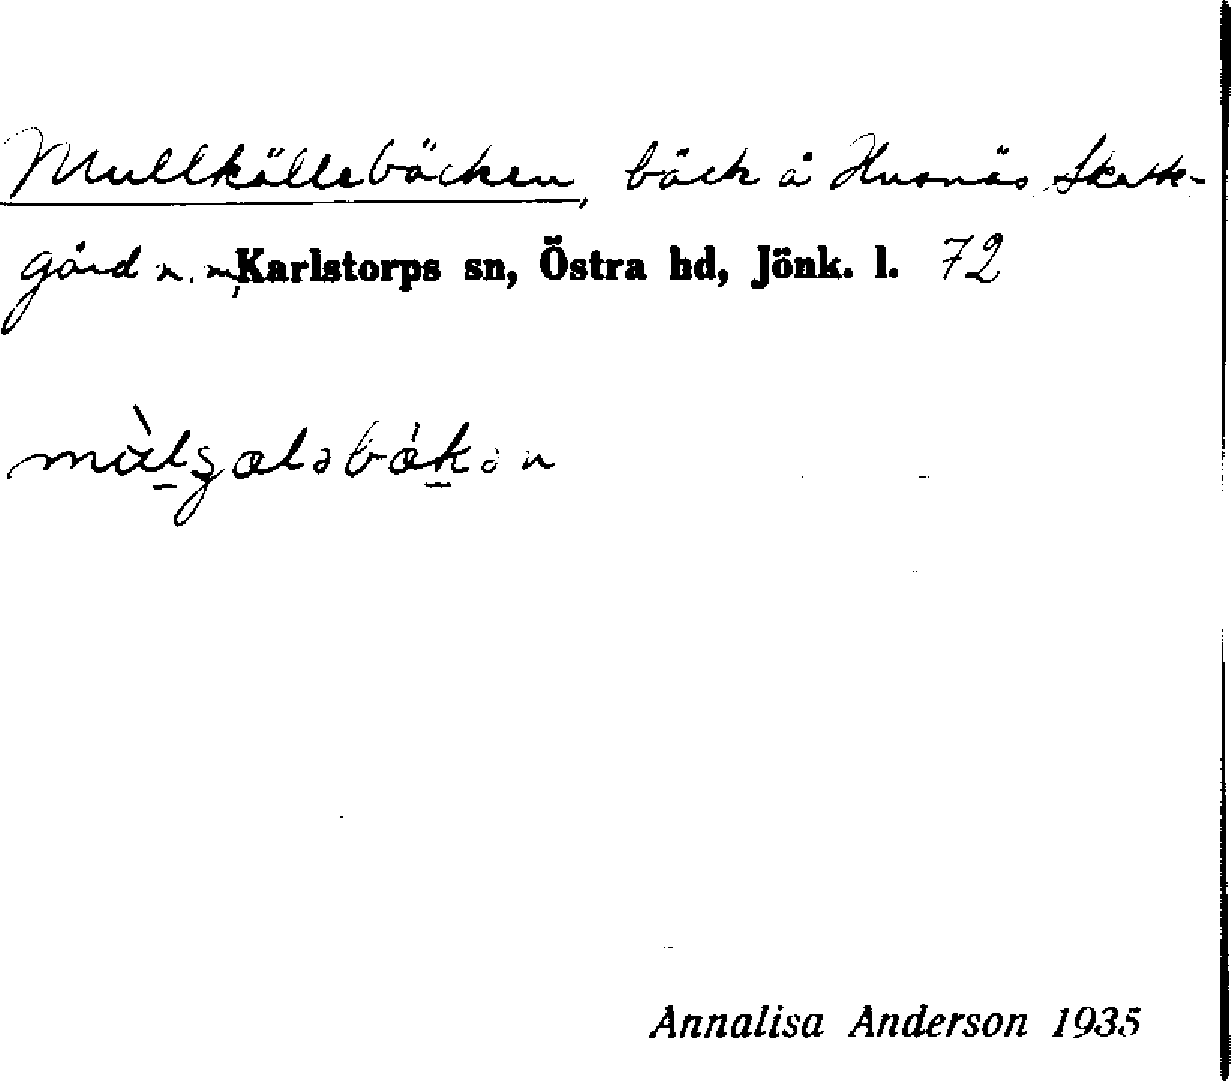 Mullkällebäcken, bäck å Husnäs Skatte-
gård n. m, Karlstorps sn, Östra hd, Jönk. l. 72
Annalisa Anderson 1935